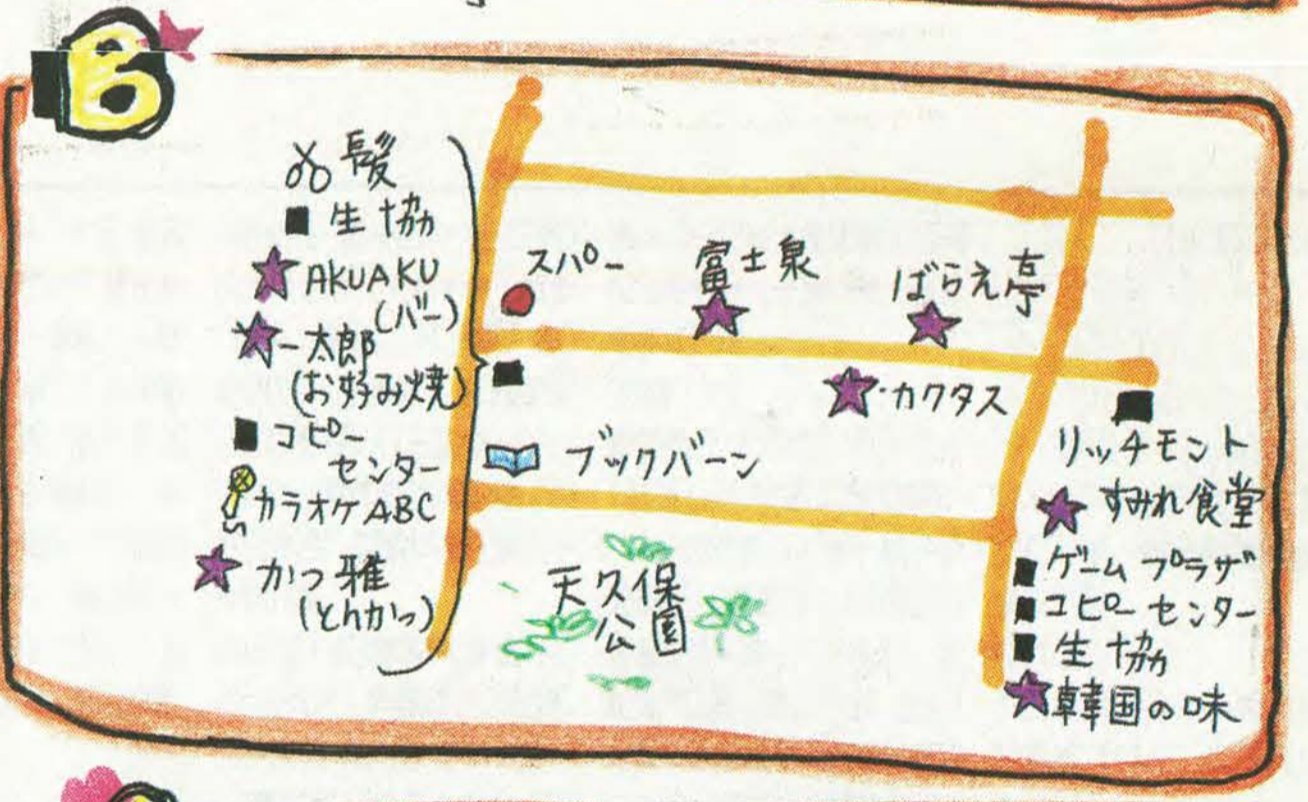 B
髪
生協
AKUAKU
(バー)
一太郎
(お好み焼)
コピー
センター
カラオケABC
かつ雅
(とんかつ)
スパー
富士泉
ばらえ亭
カクタス
ブックバーン
天久保
公園
リッチモント
すみれ食堂
ゲームプラザ
コピーセンター
生協
韓国の味